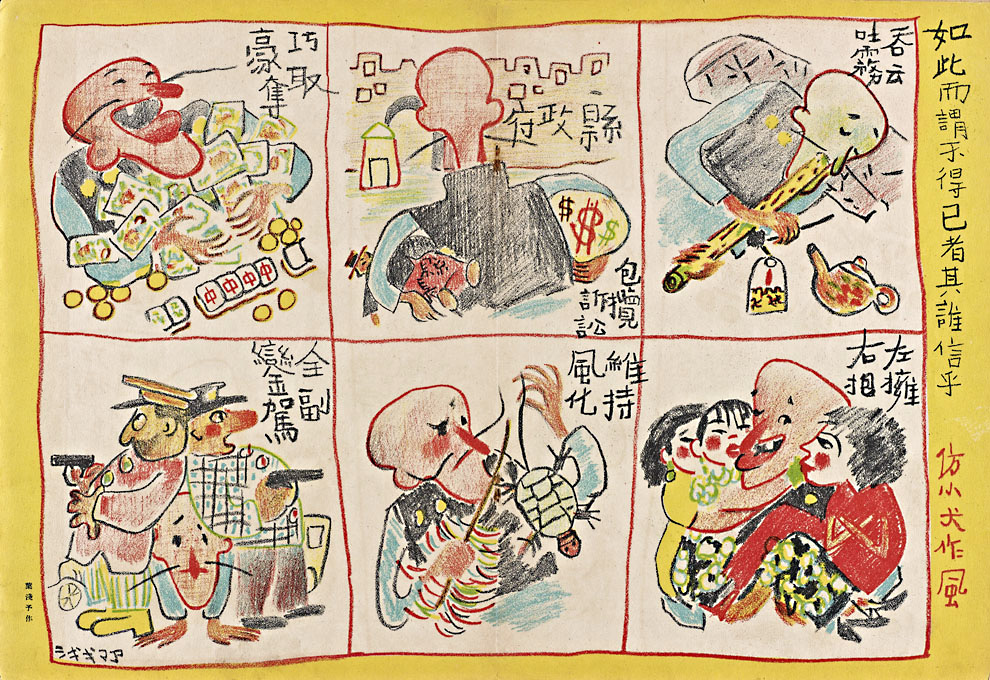 如此而謂不得已者其誰信乎
仿小犬作風
吞云
吐霧
縣
政
府
$
$
$
包攬
訴訟
巧取
豪奪
中中中中
左擁
右抱
維持
風化
全副
鑾駕
葉淺予作